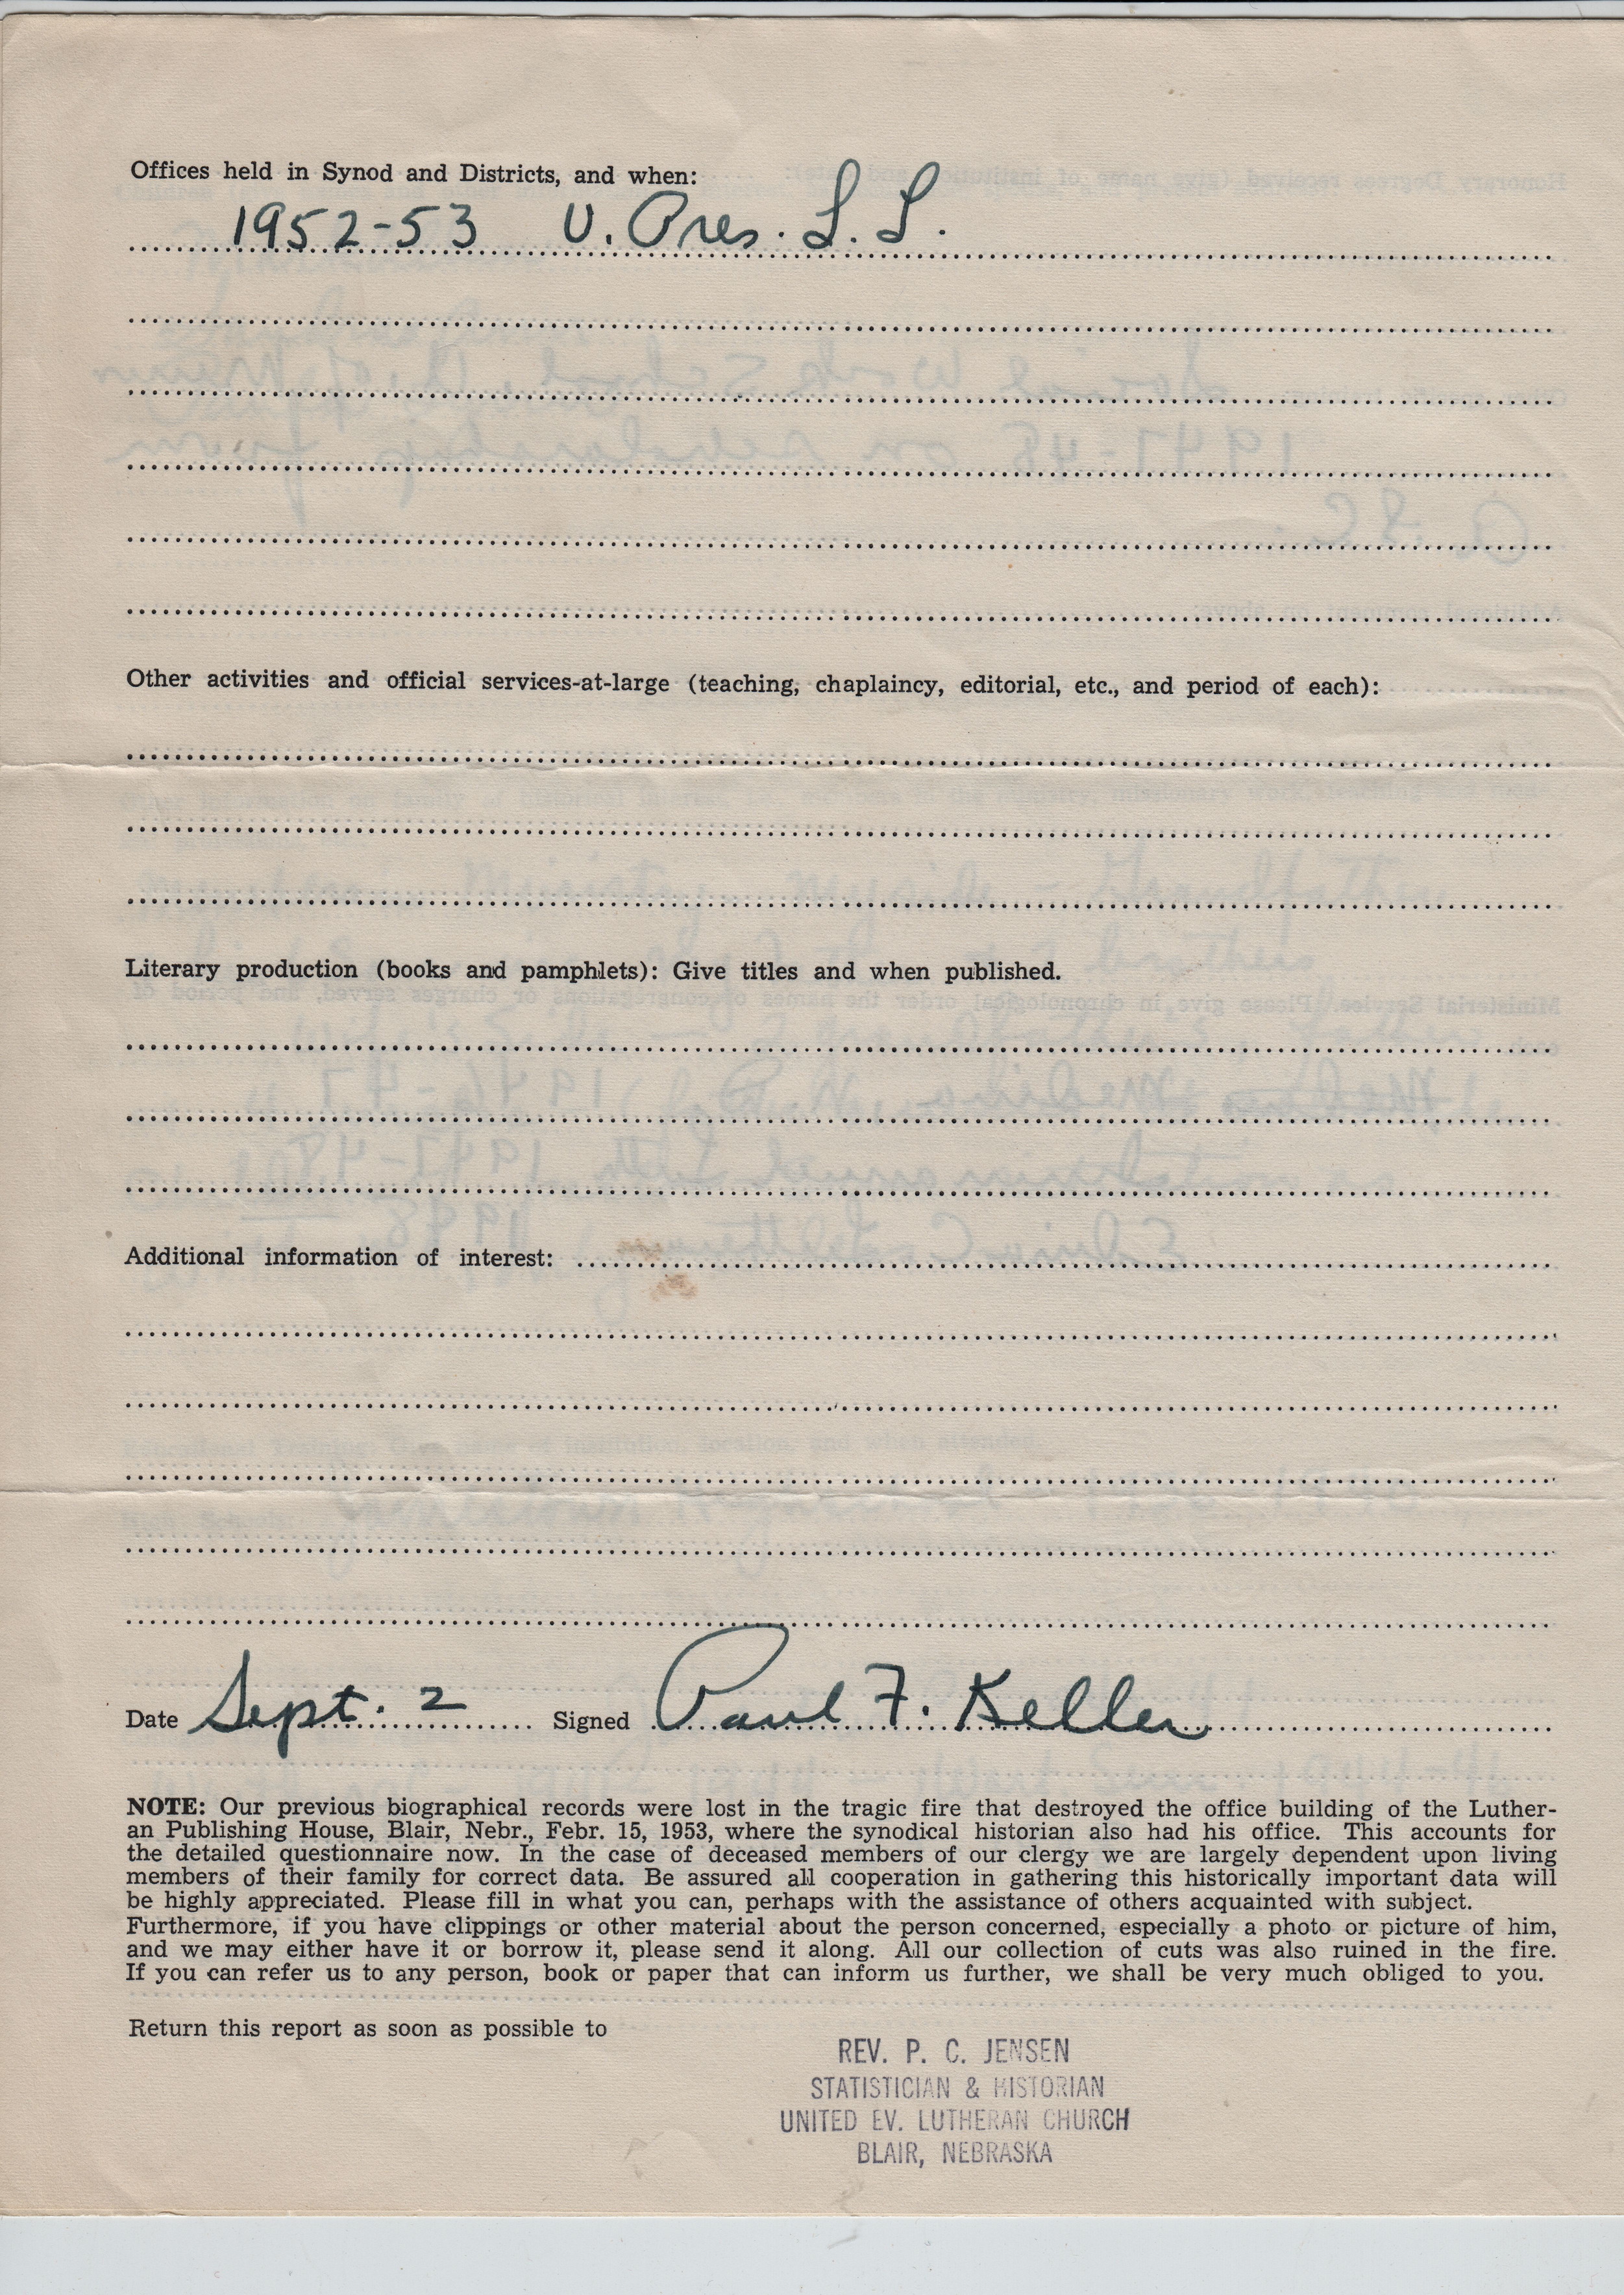 Offices held in Synod and Districts, and when:
1952-53 V. Pres. L. L.
Other activities and official services-at-large (teaching, chaplaincy, editorial, etc., and period of each):
Literary production (books and pamphlets): Give titles and when published.
Additional information of interest:
Date Sept. 2 Signed Paul F. Keller
NOTE: Our previous biographical records were lost in the tragic fire that destroyed the office building of the Luther-
an Publishing House, Blair, Nebr., Febr. 15, 1953, where the synodical historian also had his office. This accounts for
the detailed questionnaire now. In the case of deceased members of our clergy we are largely dependent upon living
members of their family for correct data. Be assured all cooperation in gathering this historically important data will
be highly appreciated. Please fill in what you can, perhaps with the assistance of others acquainted with subject.
Furthermore, if you have clippings or other material about the person concerned, especially a photo or picture of him,
and we may either have it or borrow it, please send it along. All our collection of cuts was also ruined in the fire.
If you can refer us to any person, book or paper that can inform us further, we shall be very much obliged to you.
Return this report as soon as possible to
REV. P. C. JENSEN
STATISTICIAN & HISTORIAN
UNITED EV. LUTHERAN CHURCH
BLAIR, NEBRASKA